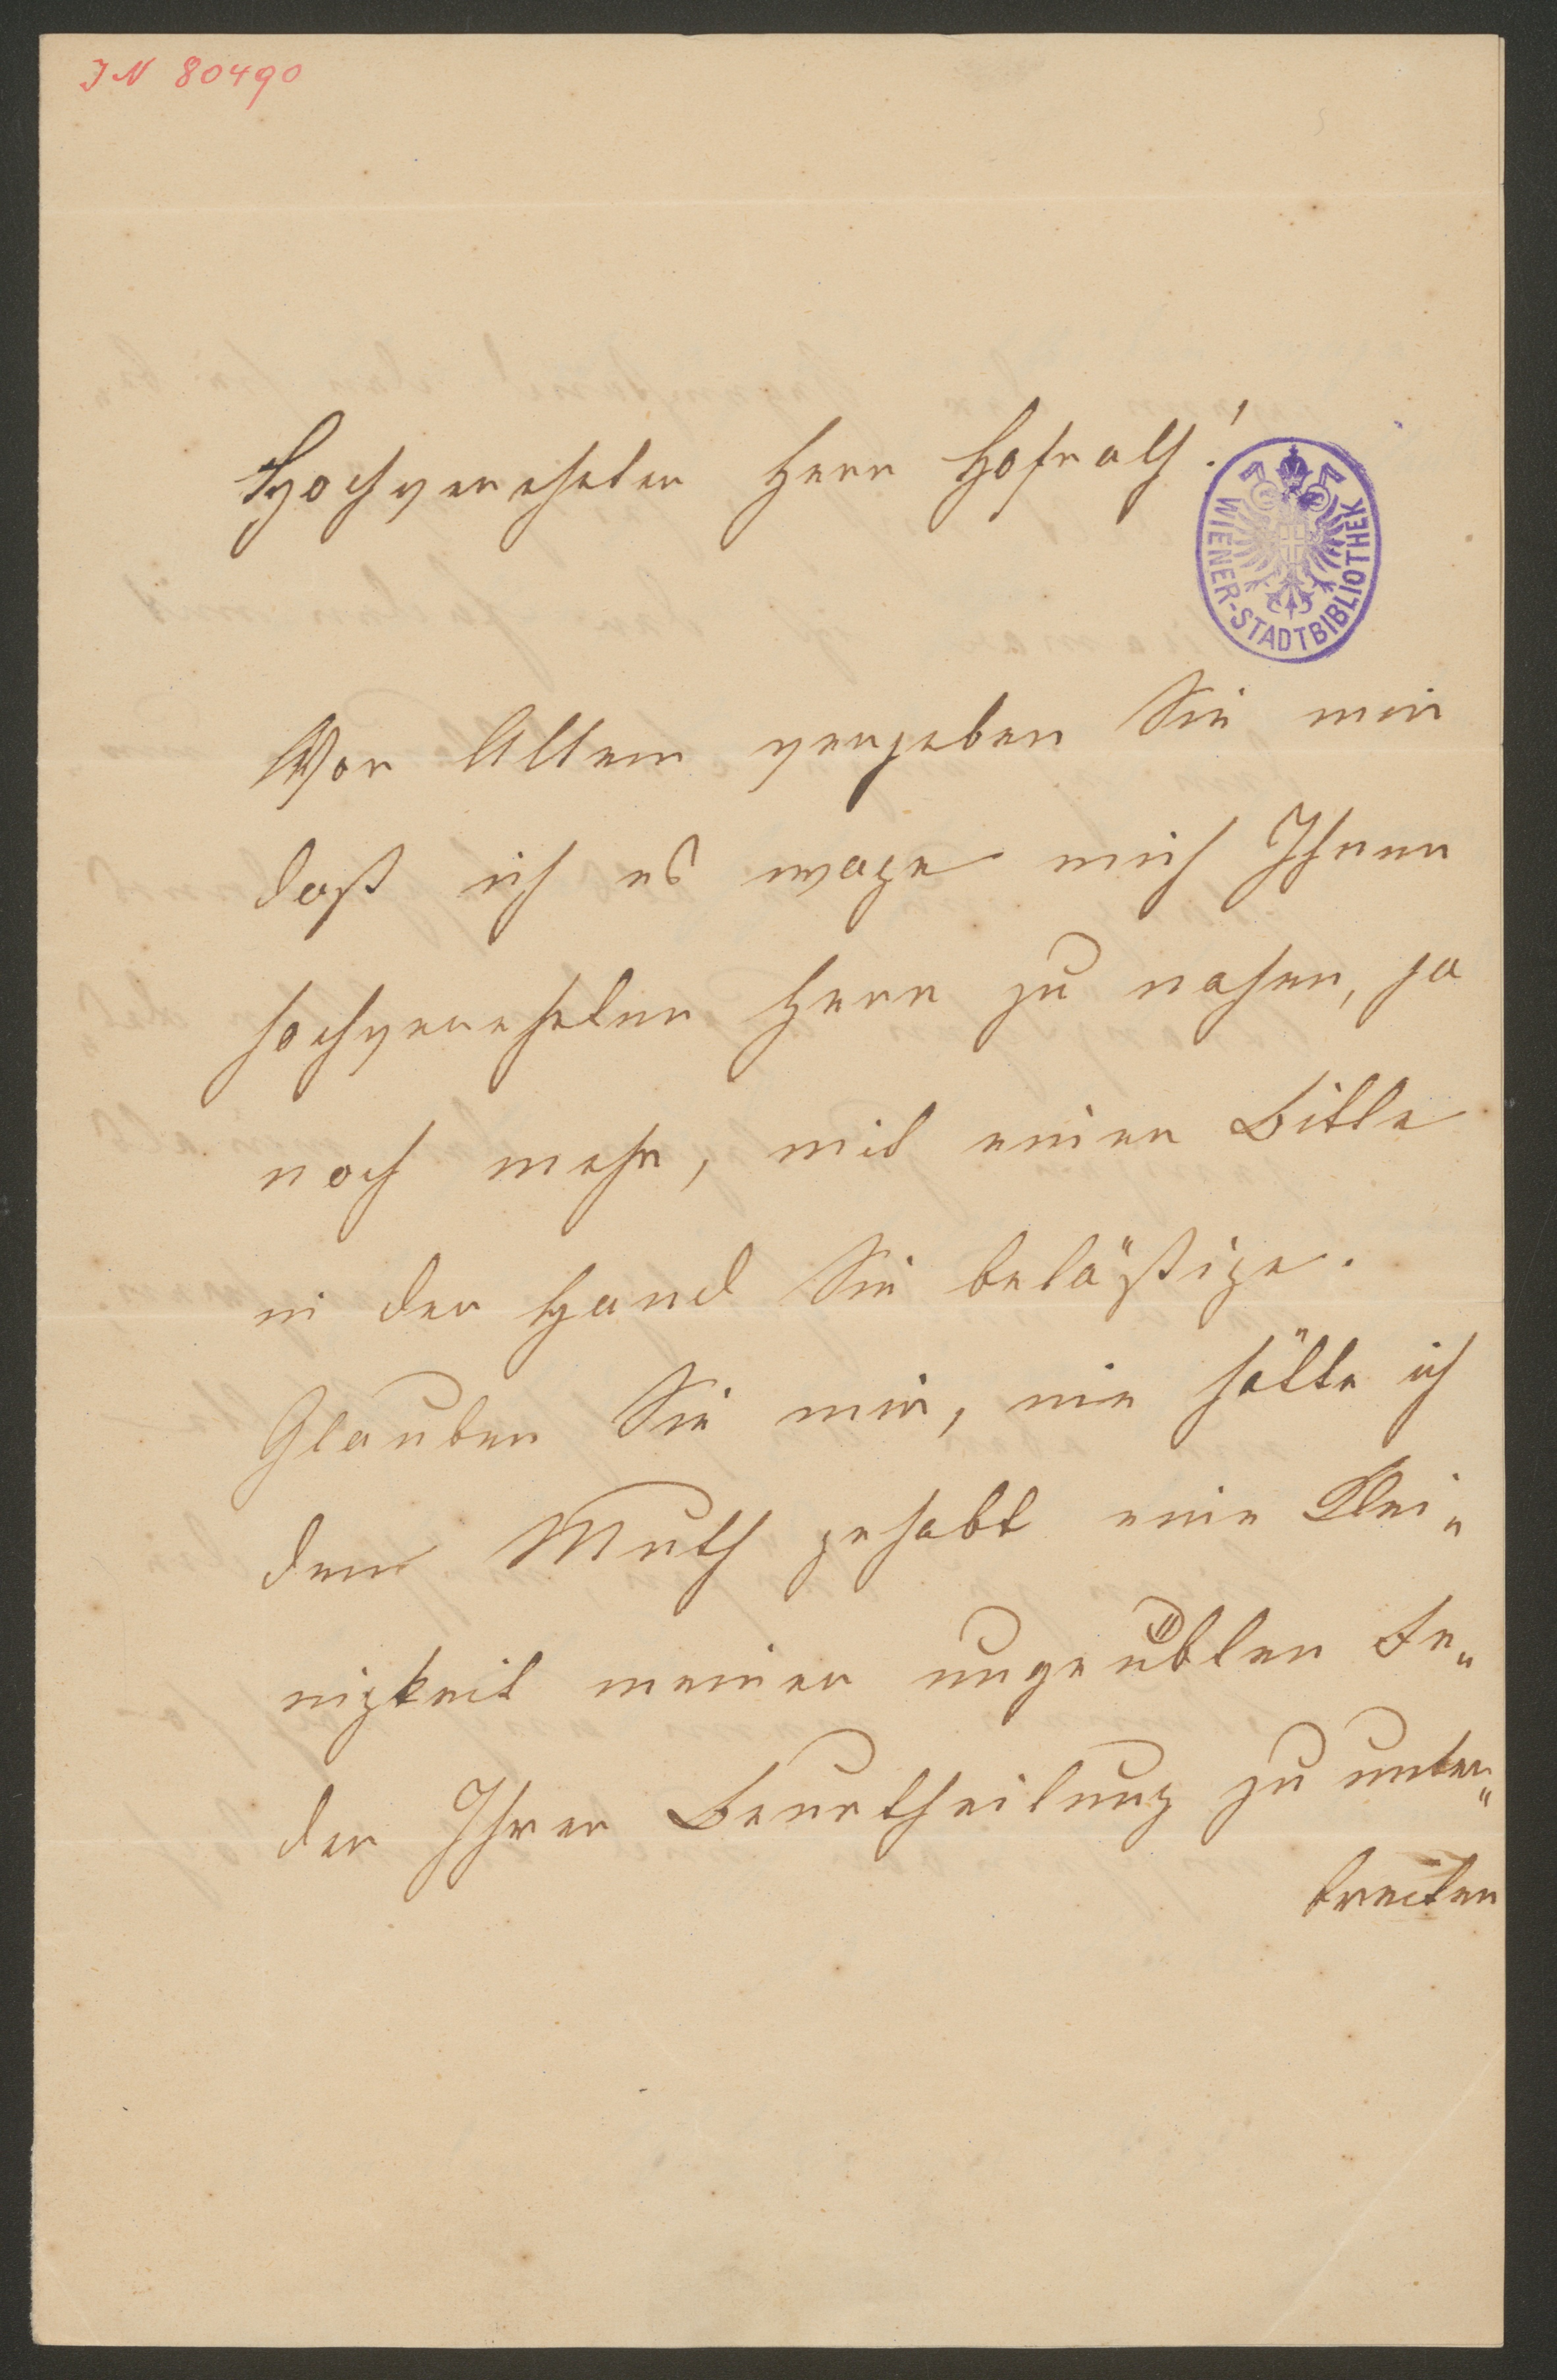 IN 80490
Hochverehrter Herr Hofrath!
WIENER-STADTBIBLIOTHEK
Vor Allem vergeben Sie mir
daß ich es wage mich Ihnen
hochverehrter Herr zu nahen, ja
noch mehr, mit einer Bitte
in der Hand Sie beläßtige.
Glauben Sie mir, nie hätte ich
den Muth gehabt eine Klei„
nigkeit meiner ungeübten Fe„
der Ihrer Beurtheilung zu unter„
breiten